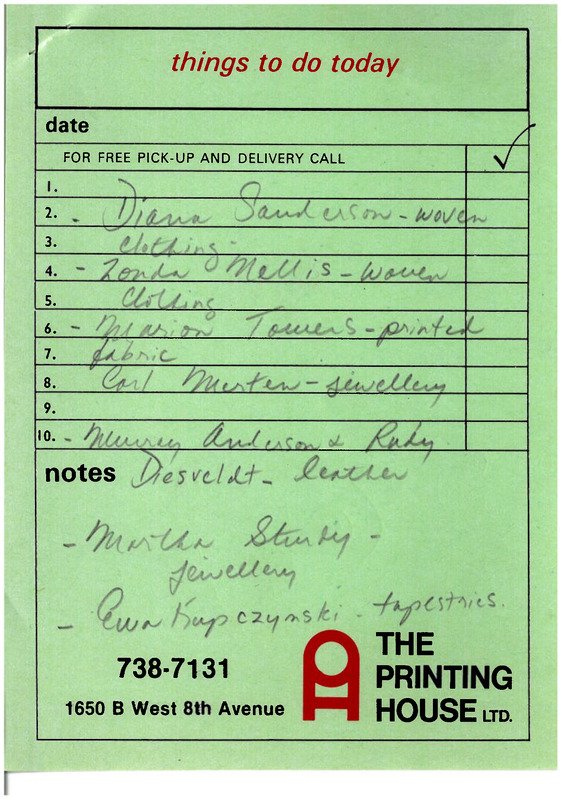 things to do today
date
FOR FREE PICK-UP AND DELIVERY CALL
1.
2. - Diana Sanderson - woven
3. clothing -
4. - Zonda Nellis - woven
5. clothing
6. - Marion Towers - printed
7. fabric
8. Carl Merten - jewellery
9.
10. - Murray Anderson & Rudy
notes Diesveldt - leather
- Martha Sturdy -
jewellery
- Ewa Kupczynski - tapestries.
738-7131
1650 B West 8th Avenue
THE
PRINTING
HOUSE LTD.